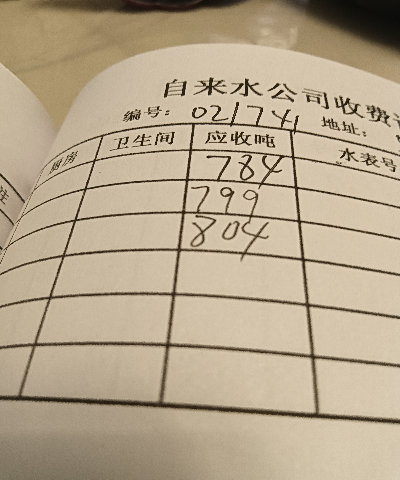 自来水公司收费
编号: 021741 地址:
厨房 卫生间 应收吨 水表号
784
799
804